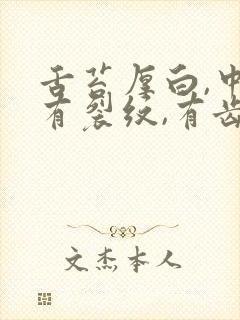 舌苔厚白,中
有裂纹,有齿
文杰本人